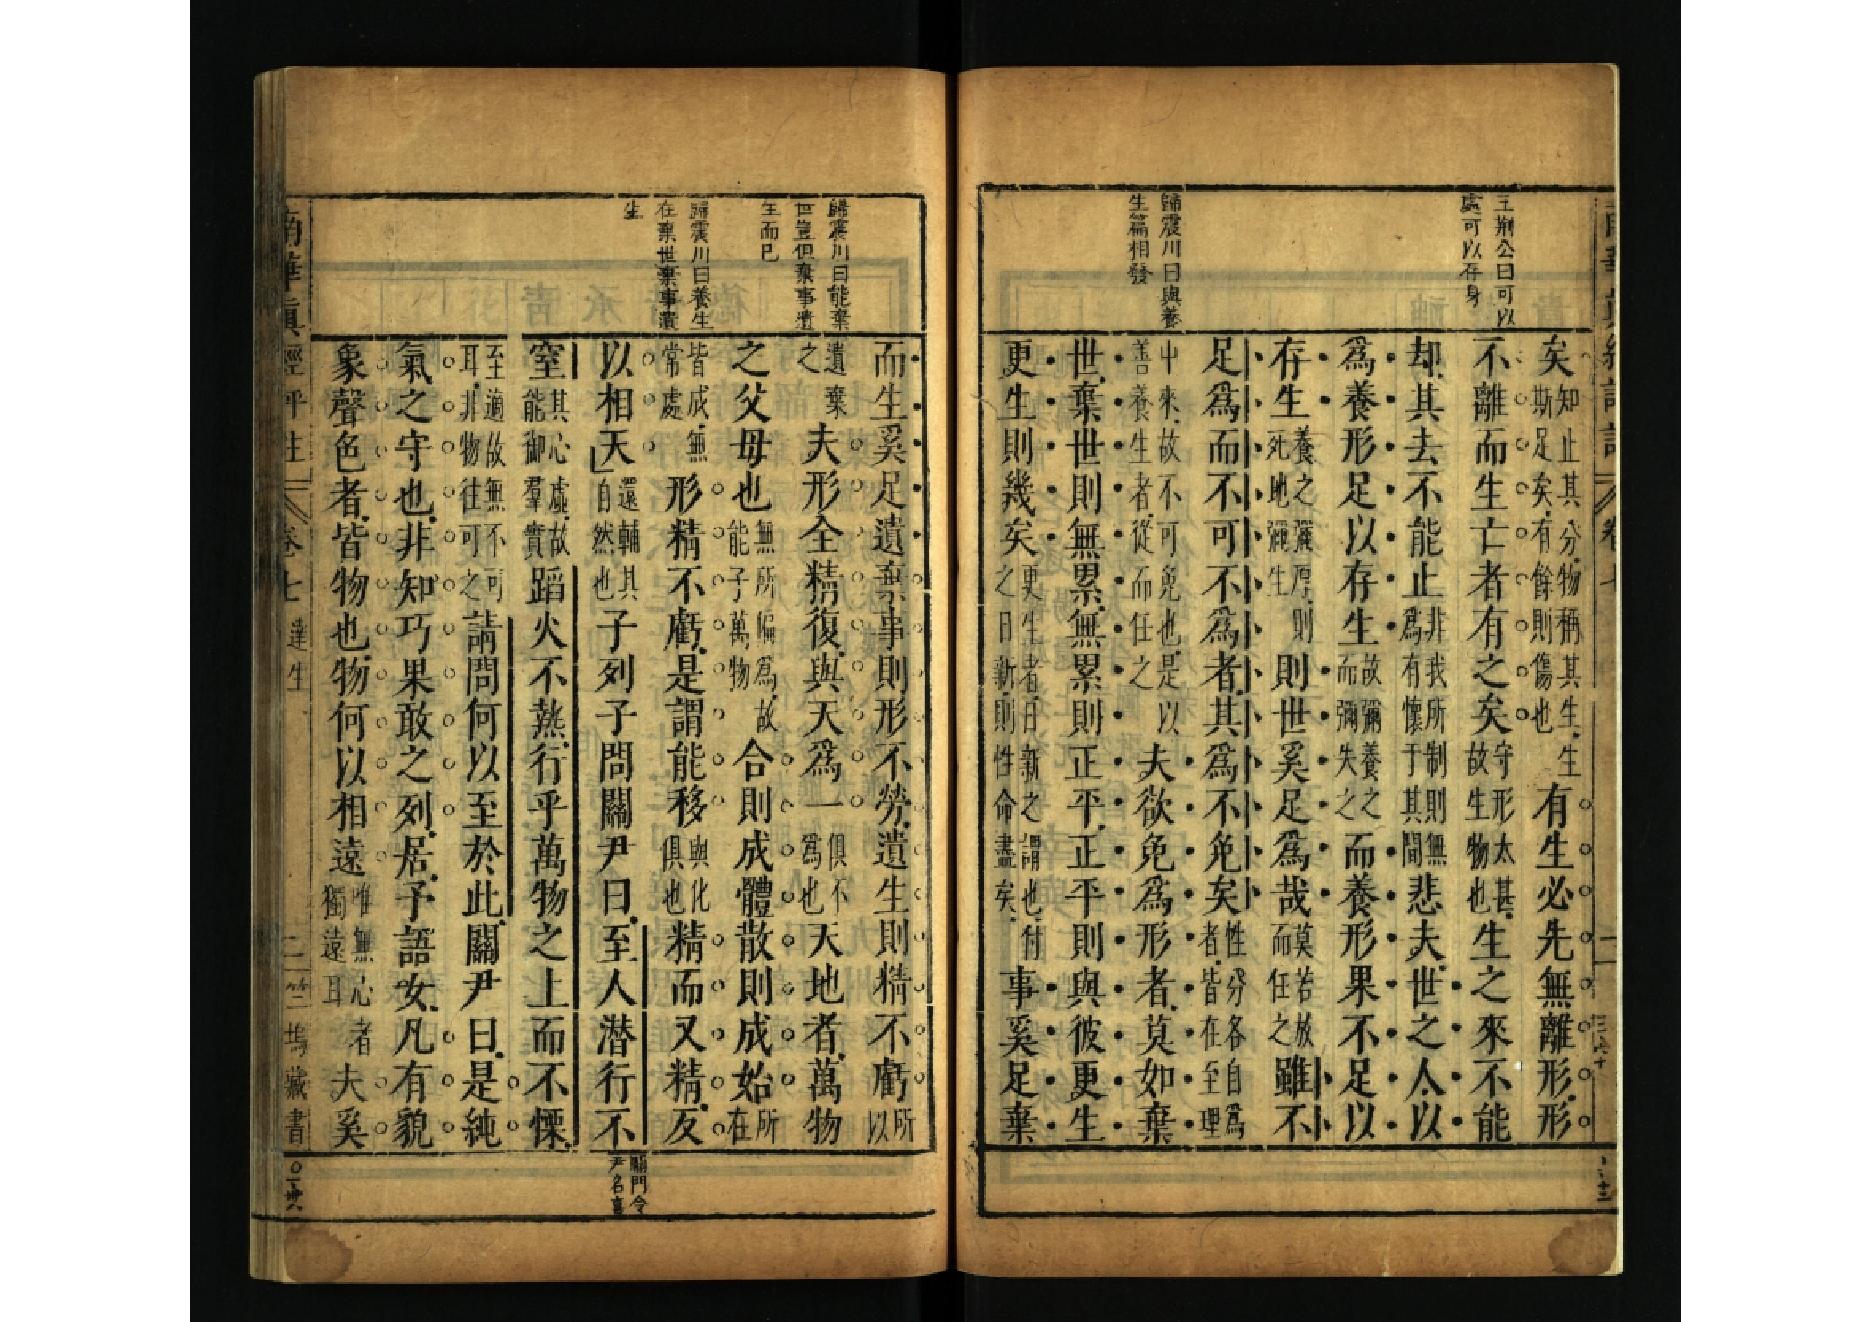 王荊公曰可以
可以存身
歸震川曰與養
生篇相發
矣知止其分物稱其生生斯足矣有餘則傷也有生必先無離形形
不離而生亡者有之矣守形太甚故生物也生之來不能
却其去不能止非我所制則無爲有懷于其間悲夫世之人以
爲養形足以存生故彌養之而彌失之而養形果不足以
存生養之彌厚則死地彌生則世奚足爲哉莫若放而任之雖不
足爲而不可不爲者其爲不免矣性分各自爲者皆在至理
中來故不可免也是以善養生者從而任之夫欲免爲形者莫如棄
世棄世則無累無累則正平正平則與彼更生
更生則幾矣更生者日新之謂也付之日新則性命盡矣事奚足棄
歸震川曰能棄
世豈但棄事遺
生而已
歸震川曰養生
在棄世棄事遺
生
而生奚足遺棄事則形不勞遺生則精不虧所以
遺棄之夫形全精復與天爲一俱不爲也天地者萬物
之父母也無所偏爲故能子萬物合則成體散則成始所在
皆成無常處形精不虧是謂能移與化俱也精而又精反
以相天還輔其自然也子列子問關尹曰至人潛行不
窒其心虛故能御羣實蹈火不熱行乎萬物之上而不慄
至適故無不可耳非物往可之請問何以至於此關尹曰是純
氣之守也非知巧果敢之列居子語女凡有貌
象聲色者皆物也物何以相遠唯無心者獨遠耳夫奚
關門令
尹名喜
南華眞經評註
卷七
達生
二
竺塢藏書